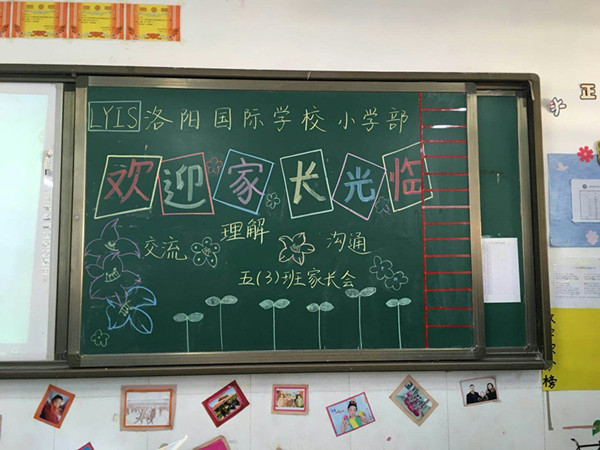 LYIS 洛阳国际学校小学部
欢迎家长光临
交流 理解 沟通
五(3)班家长会
正
榜